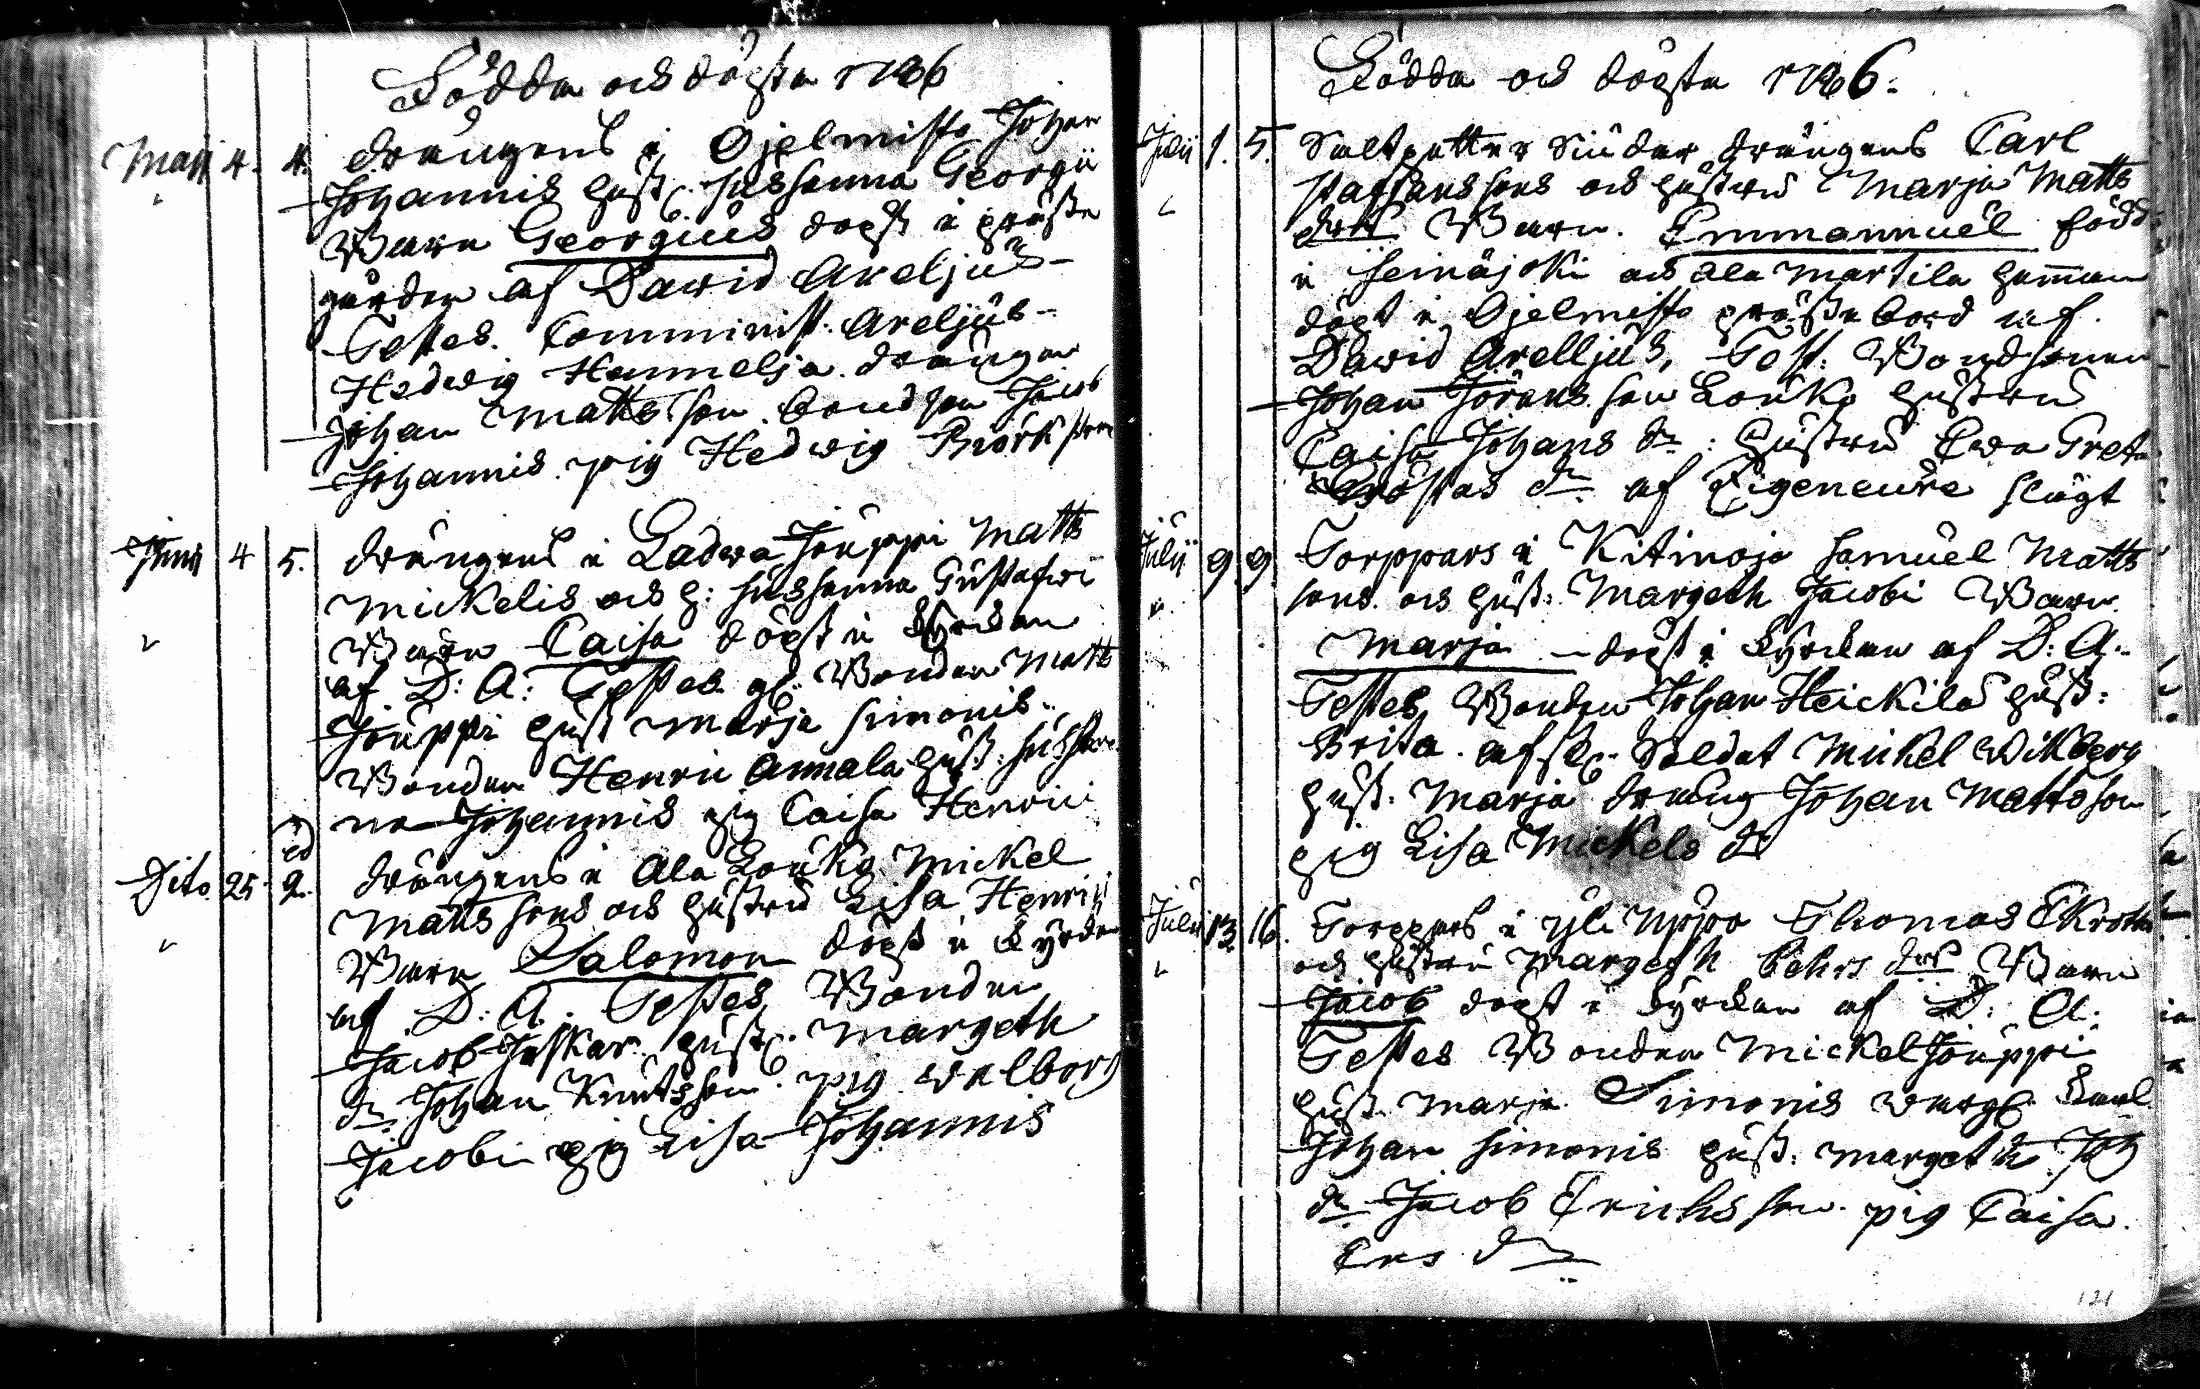 Födda och döpta 1786
Maji 4. 4. drängens i Ojelmisto Johan
Johannis hust. Susanna Georgii
Barn Georgius döpt i präste
gården af David Areljus
Testes. Comminist. Areljus
Hedwig Hemmelja. drängen
Johan Matts son. bondson Jacob
Johannis. pig Hedwig Biörkström
Junii 4 5. drängens i Ladwa Jouppi Matts
Mickelis och h: Susanna Gustafwi
Barn Caisa döpt i Kyrckan
af D: A: Testes. gl. Bonden Matts
Jouppi hust Marja Simonis
Bonden Henric Annala hust: Susan
na Johannis pig Caisa Henrici
Dito 25. 2. drängens i Ala Louko Mickel
Matts sons och hustru Lisa Henrici
Barn Salomon döpt i Kyrckan
af D: A. Testes Bonden
Jacob Juskar hust. Margeth
dr. Johan Knutsson. pig Walborg
Jacobi pig Lisa Johannis
Födda och döpta 1786.
Julii 1. 5. Saltpetter Siudar drängens Carl
Staffans sons och hustru Marja Matts
drs Barn. Emmanuel född
i Seinäjoki och Ala Martila hemman
döpt i Ojelmisto prästebord af
David Arelljus, Test: Bondsonen
Johan Jörans son Louko hustru
Caisa Johans dr: hustru Ewa Greta
dr. af Eigeneura slägt
Julii 9 9. Torppars i Kitinoja Samuel Matts
sons och hust: Margeth Jacobi Barn
Marja döpt i Kyrckan af D: A.
Testes Bonden Johan Heickilä hust:
Brita. afsk. Soldat Mickel Wikberg
hust. Marja dreng Johan Mattsson
pig Lisa Mickels dr
Julii 13 16. Torppars i Yli Uppoo Thomas Ekroth
och hustru Margeth Behrs drs Barn
Jacob döpt i Kyrckan af D: A:
Testes Bonden Mickel Jouppi
hust. Marja Simonis
Johan Simonis hust: Margeth Joh
dr Jacob Erichs son. pig Caisa
Ers dr
121